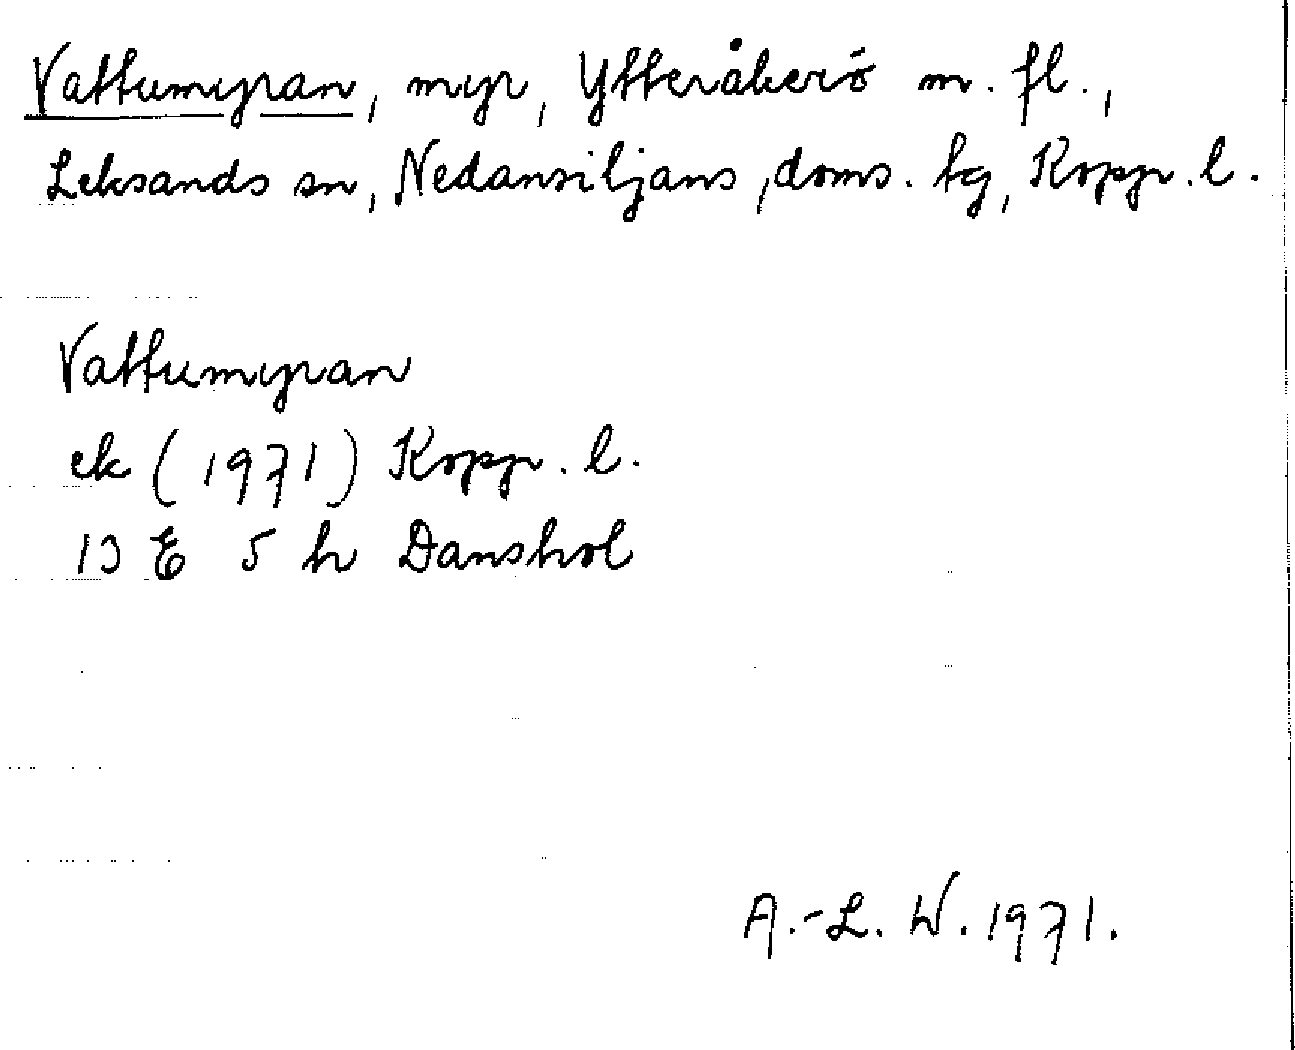 Vattumyran, myr, Ytteråkerö m. fl.,
Leksands sn, Nedansiljans, doms. tg, Koppr. l.
Vattumyran
ek (1971) Koppr. l.
13 E 5 h Danshol
A.-L. W. 1971.